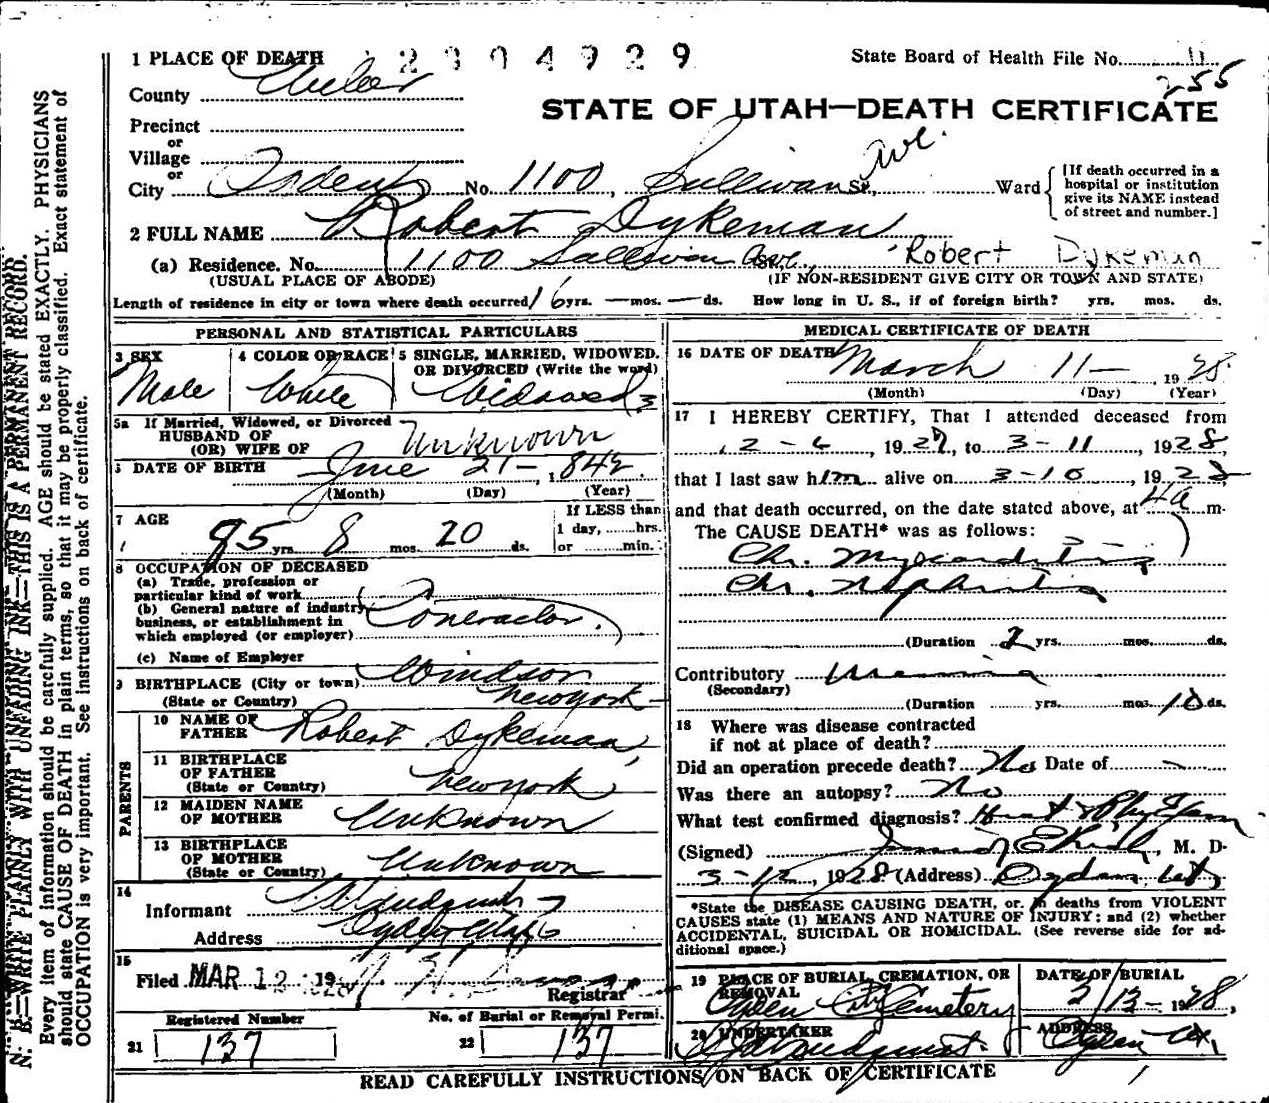 1 PLACE OF DEATH 2304929 State Board of Health File No. 11
255
County Weber
STATE OF UTAH—DEATH CERTIFICATE
Precinct
or
Village
or
City Ogden No. 1100 Sullivan St., Ave. Ward
[If death occurred in a hospital or institution give its NAME instead of street and number.]
2 FULL NAME Robert Dykeman
(a) Residence. No. 1100 Sullivan Ave. Robert Dykeman
(USUAL PLACE OF ABODE) (IF NON-RESIDENT GIVE CITY OR TOWN AND STATE)
Length of residence in city or town where death occurred 16 yrs. — mos. — ds. How long in U. S., if of foreign birth? yrs. mos. ds.
PERSONAL AND STATISTICAL PARTICULARS
3 SEX Male
4 COLOR OR RACE White
5 SINGLE, MARRIED, WIDOWED. OR DIVORCED (Write the word) Widowed 3
5a If Married, Widowed, or Divorced
HUSBAND OF
(OR) WIFE OF Unknown
DATE OF BIRTH June 21 - 1842
(Month) (Day) (Year)
7 AGE 85 yrs. 8 mos. 20 ds.
If LESS than
1 day, hrs.
or min.
8 OCCUPATION OF DECEASED
(a) Trade, profession or
particular kind of work
(b) General nature of industry
business, or establishment in
which employed (or employer) Contractor
(c) Name of Employer
9 BIRTHPLACE (City or town) Windsor
(State or Country) New York
PARENTS
10 NAME OF
FATHER Robert Dykeman
11 BIRTHPLACE
OF FATHER
(State or Country) New York
12 MAIDEN NAME
OF MOTHER Unknown
13 BIRTHPLACE
OF MOTHER
(State or Country) Unknown
14
Informant
Address
15
Filed MAR 12 1928
Registrar
Registered Number
21 137
No. of Burial or Removal Permi.
22 137
MEDICAL CERTIFICATE OF DEATH
16 DATE OF DEATH March 11 - 1928
(Month) (Day) (Year)
17 I HEREBY CERTIFY, That I attended deceased from
1927, to 3-11, 1928,
that I last saw him alive on 3-10, 1928
and that death occurred, on the date stated above, at 4a m.
The CAUSE DEATH* was as follows:
Chr. Myocarditis
Chr. Nephritis
(Duration 2 yrs. mos. ds.
Contributory Uremia
(Secondary)
(Duration yrs. mos. 10 ds.
18 Where was disease contracted
if not at place of death?
Did an operation precede death? No Date of —
Was there an autopsy? No
What test confirmed diagnosis?
(Signed) , M. D-
3-12, 1928 (Address) Ogden Ut
*State the DISEASE CAUSING DEATH, or. in deaths from VIOLENT
CAUSES state (1) MEANS AND NATURE OF INJURY: and (2) whether
ACCIDENTAL, SUICIDAL OR HOMICIDAL. (See reverse side for ad-
ditional space.)
19 PLACE OF BURIAL, CREMATION, OR
REMOVAL
Ogden City Cemetery
DATE OF BURIAL
3/13 - 1928,
20 UNDERTAKER
ADDRESS
Ogden Ut,
READ CAREFULLY INSTRUCTIONS ON BACK OF CERTIFICATE
N. B.—WRITE PLAINLY WITH UNFADING INK—THIS IS A PERMANENT RECORD.
Every item of information should be carefully supplied. AGE should be stated EXACTLY. PHYSICIANS
should state CAUSE OF DEATH in plain terms, so that it may be properly classified. Exact statement of
OCCUPATION is very important. See instructions on back of certificate.